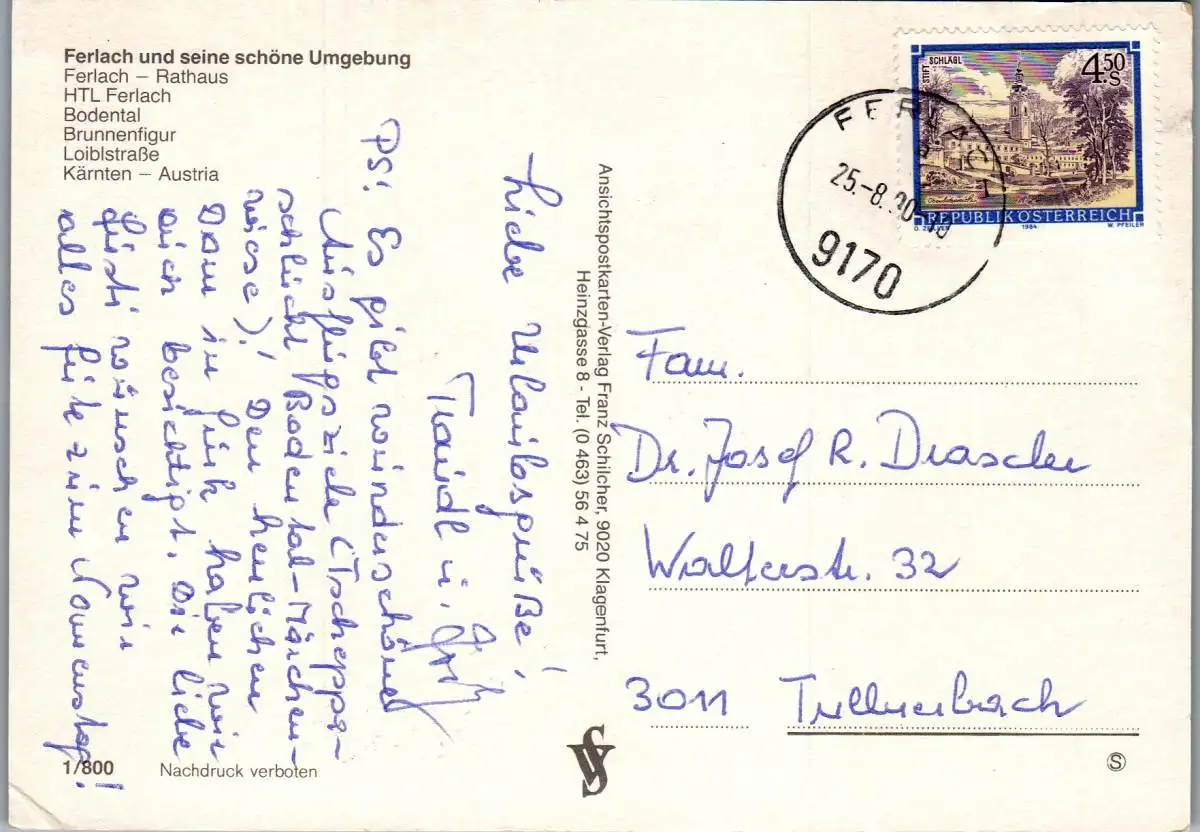 Ferlach und seine schöne Umgebung
Ferlach – Rathaus
HTL Ferlach
Bodental
Brunnenfigur
Loiblstraße
Kärnten – Austria
Liebe Urlaubsgrüße!
Traudl u.
PS: Es gibt wunderschöne
Ausflugsziele (Tscheppa-
schlucht, Bodental-Märchen-
wiese)! Den herrlichen
Dom in Gurk haben wir
auch besichtigt. Dir liebe
Gusti wünschen wir
alles Gute zum Namenstag!
1/800
Nachdruck verboten
Ansichtspostkarten-Verlag Franz Schilcher, 9020 Klagenfurt,
Heinzgasse 8 - Tel. (0 463) 56 4 75
STIFT SCHLÄGL
4.50
S
REPUBLIK ÖSTERREICH
1984
W. PFEILER
FERLACH
25.-8.90
9170
Fam.
Dr. Josef R. Drascher
Walterstr. 32
3011 Tullnerbach
S